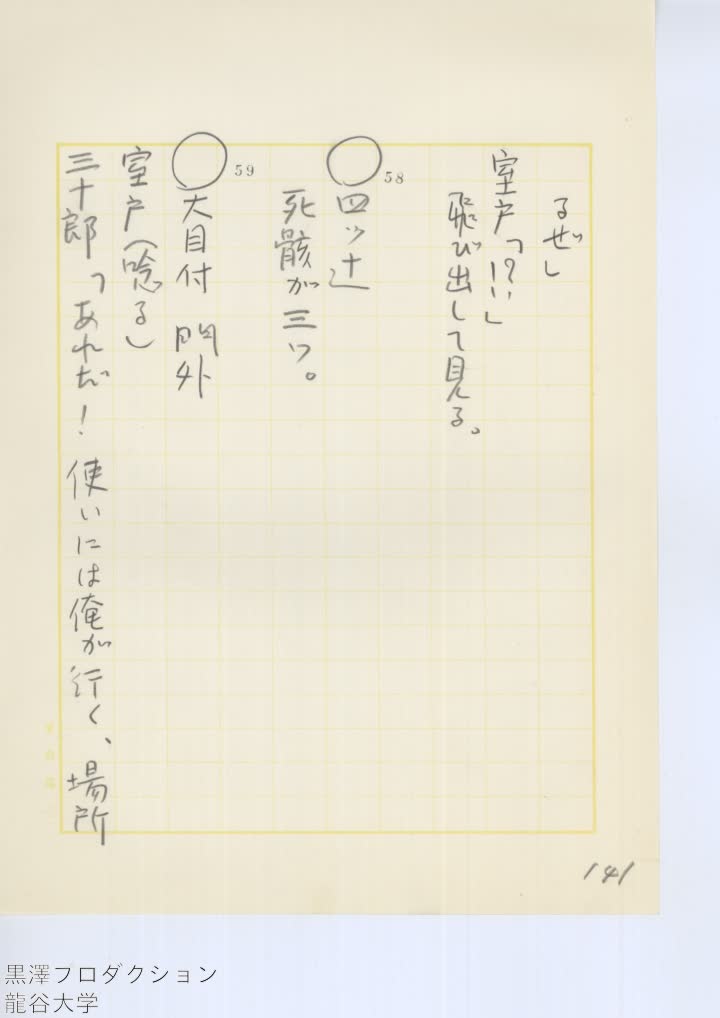 るぜ」
室戸「!?……」
飛び出して見る。
58
○四ツ辻
死骸が三ツ。
59
○大目付 門外
室戸(唸る)
三十郎「あれだ! 使いには俺が行く、場所
141
黒澤プロダクション
龍谷大学